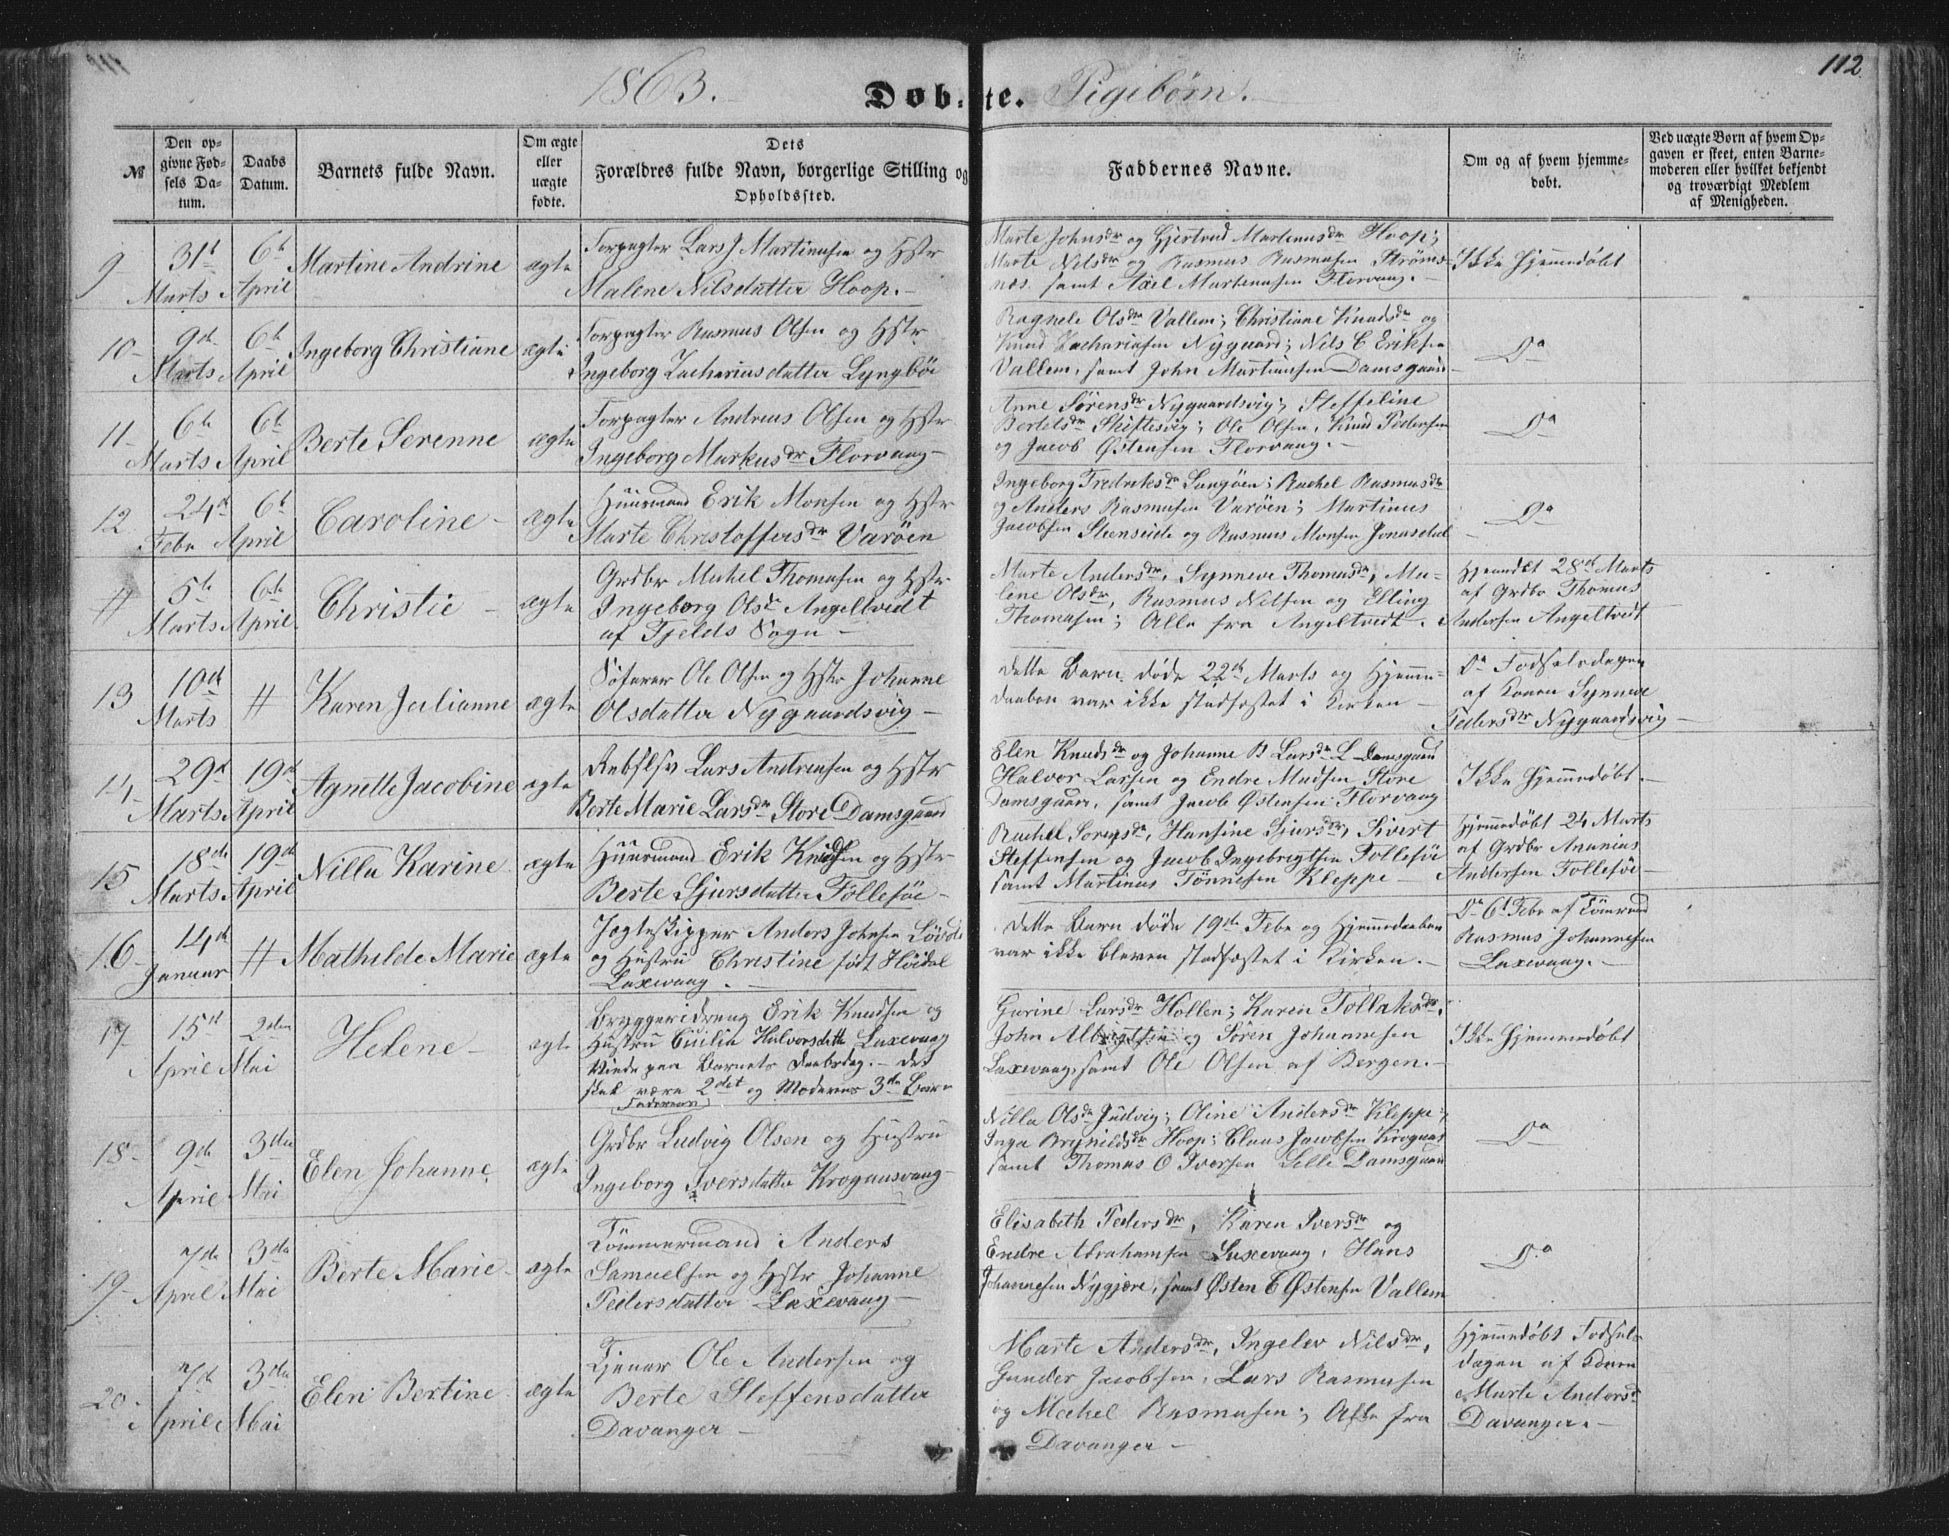 112
1863. Døb-te. Pigebørn.
№
Den op-
givne Fød-
sels Da-
tum.
Daabs
Datum.
Barnets fulde Navn.
Om ægte
eller
uægte
fødte.
Dets
Forældres fulde Navn, borgerlige Stilling og
Opholdssted.
Faddernes Navne.
Om og af hvem hjemme-
døbt.
Ved uægte Børn af hvem Op-
gaven er skeet, enten Barne-
moderen eller hvilket bekjendt
og troværdigt Medlem
af Menigheden.
9
31t
Marts
6t
April
Martine Andrine
ægte
Forpagter Lars J Martinusen og Hstr
Malene Nilsdatter Hoop.
Marte Johnsdr og Gjertrud Martinusdr Hoop;
Marte Nilsdr og Rasmus Rasmusen Strøms-
næs. samt Axel Martinusen Florvaag.
Ikke Hjemmedøbt
10
9d
Marts
6t
April
Ingeborg Christiane
ægte
Forpagter Rasmus Olsen og Hstr
Ingeborg Zachariasdatter Lyngbøe
Ragnele Olsdr Vallem; Christiane Knudsdr og
Knud Zachariasen Nygaard; Nils C Eriksen
Vallem, samt John Martinusen Damsgaard
Do
11
6te
Marts
6t
April
Berte Serenne
ægte
Forpagter Andreas Olsen og Hstr
Ingeborg Markusdr Florvaag
Anne Sørensdr Nygaardsvig; Steffeline
Bertelsdr Skiftesvig; Ole Olsen, Knud Pedersen
og Jacob Østensen Florvaag.
Do
12
24d
Febr
6t
April
Caroline
ægte
Huusmand Erik Monsen og Hstr
Marte Christoffersdr Varöen
Ingeborg Fredriksdr Sangöen; Rachel Rasmusdr
og Anders Rasmusen Varöen; Martinus
Jacobsen Steenseide og Rasmus Monsen Jonasdal
Do
#
5te
Marts
6te
April
Christie
ægte
Grdbr Mickel Thomasen og Hstr
Ingeborg Olsdr Angeltvedt
af Fjelds Sogn
Marte Andersdr, Synneve Thomasdr, Ma-
lene Olsdr, Rasmus Nilsen og Elling
Thomasen; Alle fra Angeltvedt.
Hjemdbt 28de Marts
af Grdbr Thomas
Andersen Angeltvedt
13
10de
Marts
#
Karen Julianne
ægte
Söfarer Ole Olsen og Hstr Johanne
Olsdatter Nygaardsvig
Dette Barn døde 22de Marts og Hjemme-
daaben var ikke stadfæstet i Kirken
Do Fødselsdagen
af Konen Synneve
Pedersdr Nygaardsvig
14
29d
Marts
19d
April
Agnette Jacobine
ægte
Lars Andreasen og Hstr
Berte Marie Larsdr Store Damsgaard
Elen Knudsdr og Johanne B Larsdr L Damsgaard
Halvor Larsen og Endre Madsen Store
Damsgaard, samt Jacob Østensen Florvaag
Ikke Hjemmedøbt.
15
18de
Marts
19de
April
Nilla Karine
ægte
Huusmand Erik Knudsen og Hstr
Berte Sjursdatter Follesöe
Rachel Sorensdr, Hansine Sjursdr, Sivert
Steffensen og Jacob Ingebrigtsen Follesöe
samt Martinus Tönnesen Kleppe
Hjemmedöbt 24 Marts
af Grdbr Ananias
Andersen Follesöe
16
14de
Januar
#
Mathilde Marie
ægte
Jagteskipper Anders Johnsen
og Hustru Christine født Höidal
Laxevaag.
Dette Barn døde 19de Febr og Hjemmedaaben
var ikke bleven stadfæstet i Kirken.
Do 6t Febr af Tömrmd
Rasmus Johannesen
Laxevaag.
17
15d
April
2den
Mai
Helene
ægte
Bryggeridreng Erik Knudsen og
Hustru Cicilia Halvorsdatt Laxevaag
Barnets Daabsdag. Det
skal være 2det og Moderens 3die Barn
Faderens
Gurine Larsdr Hollen; Karen Tollaksdr,
John Albrigtsen og Sören Johannesen
Laxevaag, samt Ole Olsen af Bergen.
Ikke Hjemmedøbt
18
9de
April
3die
Mai
Elen Johanne
ægte
Grdbr Ludvig Olsen og Hustru
Ingeborg Iversdatter Krogaasvaag
Nilla Olsdr Judvig; Oline Andersdr Kleppe;
Inga Brynildsdr Hoop; Claus Jacobsen Krogaas
samt Thomas O Iversen Lille Damsgaard
Do
19
7de
April
3die
Mai
Berte Marie
ægte
Tömmermand Anders
Samuelsen og Hstr Johanne
Pedersdatter Laxevaag
Elisabeth Pedersdr, Karen Iversdr og
Endre Abrahamsen Laxevaag, Hans
Johannesen Nygjære, samt Østen C Østensen Vallem
Do
20
7de
April
3die
Mai
Elen Bertine
ægte
Tjener Ole Andersen og
Berte Steffensdatter
Davanger
Marte Andersdr, Ingelev Nilsdr,
Gunder Jacobsen, Lars Rasmusen
og Mickel Rasmusen; Alle fra
Davanger
Hjemmedøbt Fødsels-
dagen af Konen
Marte Andersdr
Davanger.